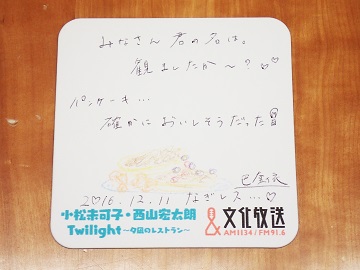 みなさん 君の名は。
観ましたか〜?♡♡
パンケーキ…
確かに おいしそうだった
2016.12.11 なぎレス…♡
小松未可子・西山宏太朗
Twilight〜夕凪のレストラン〜
文化放送
AM1134/FM91.6